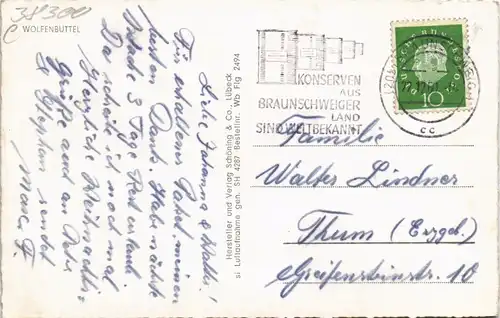 38300
C WOLFENBÜTTEL
Liebe Johanna & Walter!
Für erhaltenes Paket meinen
besten Dank. Habe nächste
Woche 3 Tage Resturlaub.
Da schreibe ich noch mal
Herzliche Weihnachts-
Grüße auch an Peter
& Stephan sendet
Max F.
Hersteller und Verlag Schöning & Co., Lübeck
si Luftaufnahme gen. SH 4287 Bestellnr. Wb Flg 2494
KONSERVEN
AUS
BRAUNSCHWEIGER
LAND
SIND WELTBEKANNT
DEUTSCHE BUNDESPOST
10
cc
Familie
Walter Lindner
Thum (Erzgeb.)
Greifensteinstr. 10